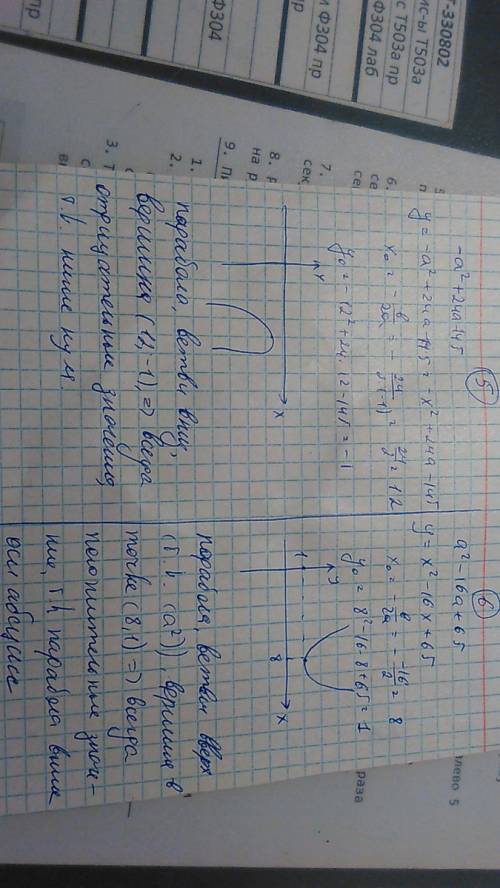 Т-330802
ис-ы Т503а
с Т503а пр
Ф304 лаб
и Ф304 пр
пр
Ф304
пр
6.
7.
8.
на р
9.
1.
2.
3. Т
влево 5
раза
5
-a²+24a-145
y = -a²+24a-145 = x²+24a-145
x₀ = - в/2a = - 24/2·(-1) = 24/2 = 12
y₀ = -12²+24·12-145 = -1
y
x
парабола, ветви вниз,
вершина (12,-1), => всегда
отрицательные значения,
т.к. ниже нуля
6
a²-16a+65
y = x²-16x+65
x₀ = - в/2a = - -16/2 = 8
y₀ = 8²-16·8+65 = 1
y
1
8
x
парабола, ветви вверх
(т.к. (a²)), вершина в
точке (8,1) => всегда
положительные значе-
ние, т.к парабола выше
оси абсцисс